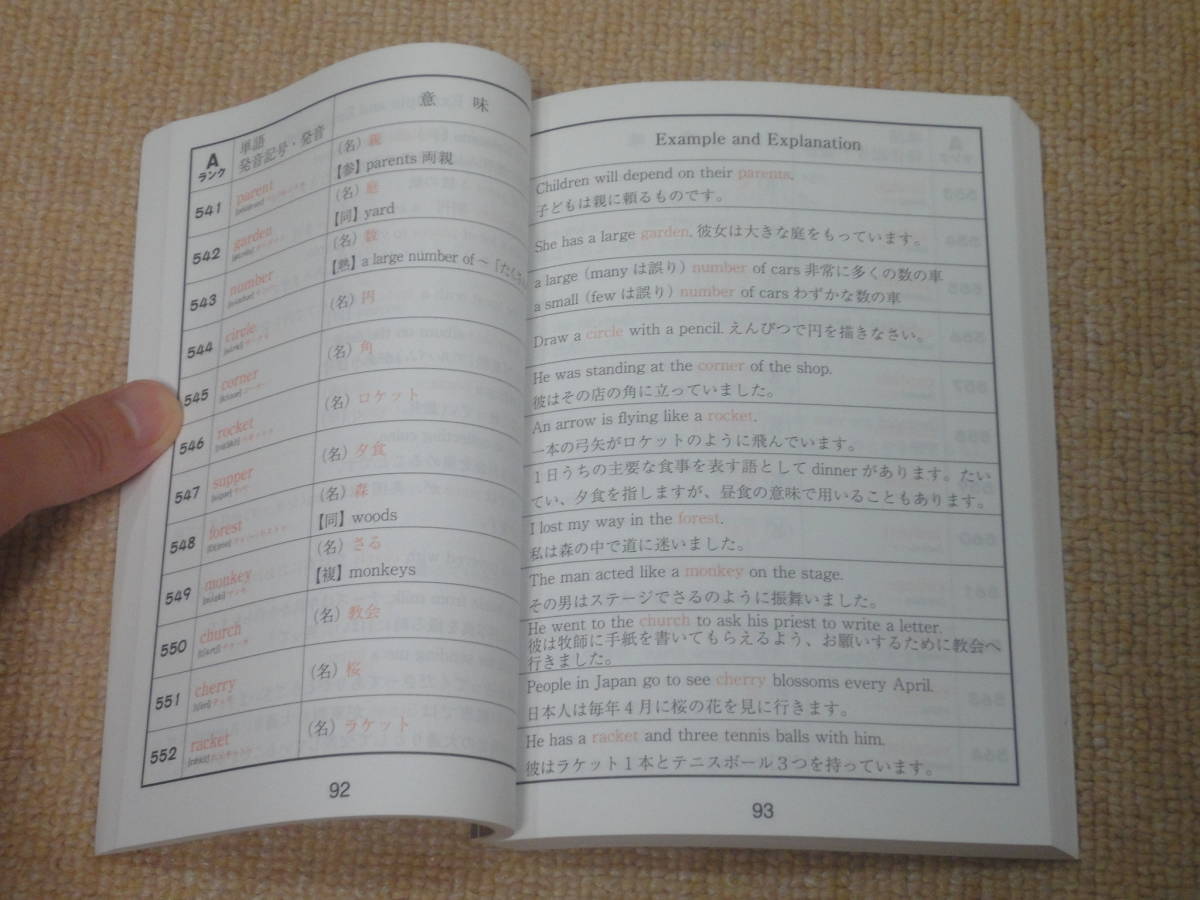 A
ランク
単語
発音記号・発音
意 味
541
parent
(名) 親
【参】parents 両親
542
garden
(名) 庭
【同】yard
543
number
(名) 数
【熟】a large number of ~「たくさん
544
circle
(名) 円
545
corner
(名) 角
546
rocket
(名) ロケット
547
supper
(名) 夕食
548
forest
(名) 森
【同】woods
549
monkey
(名) さる
【複】monkeys
550
church
(名) 教会
551
cherry
(名) 桜
552
racket
(名) ラケット
92
Example and Explanation
Children will depend on their parents.
子どもは親に頼るものです。
She has a large garden. 彼女は大きな庭をもっています。
a large (many は誤り) number of cars 非常に多くの数の車
a small (few は誤り) number of cars わずかな数の車
Draw a circle with a pencil. えんぴつで円を描きなさい。
He was standing at the corner of the shop.
彼はその店の角に立っていました。
An arrow is flying like a rocket.
一本の弓矢がロケットのように飛んでいます。
1日うちの主要な食事を表す語として dinner があります。たい
てい、夕食を指しますが、昼食の意味で用いることもあります。
I lost my way in the forest.
私は森の中で道に迷いました。
The man acted like a monkey on the stage.
その男はステージでさるのように振舞いました。
He went to the church to ask his priest to write a letter.
彼は牧師に手紙を書いてもらえるよう、お願いするために教会へ
行きました。
People in Japan go to see cherry blossoms every April.
日本人は毎年4月に桜の花を見に行きます。
He has a racket and three tennis balls with him.
彼はラケット1本とテニスボール3つを持っています。
93